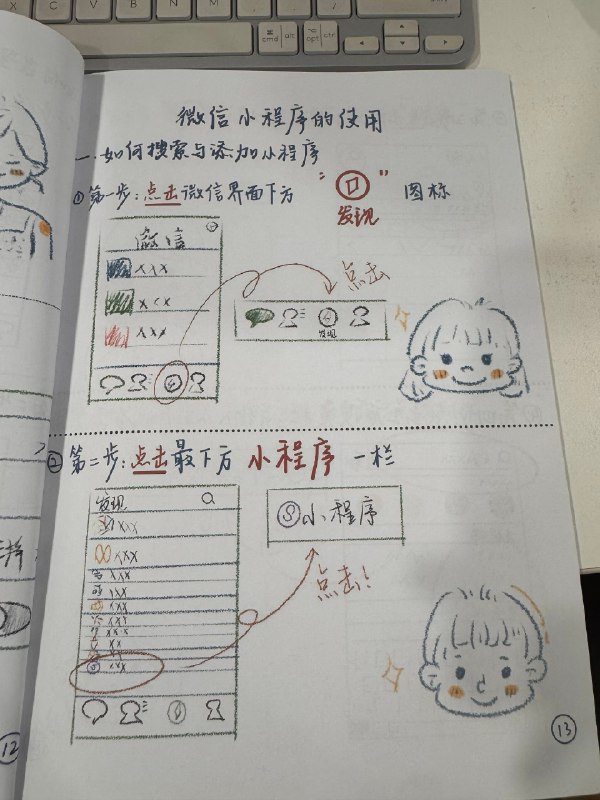 ⌘ cmd alt
⌥ opt ctrl
微信小程序的使用
一.如何搜索与添加小程序
①第一步:点击微信界面下方 “ ” 图标
发现
微信
xxx
xxx
xxx
点击
发现
②第二步:点击最下方 小程序 一栏
发现
xxx
xxx
xxx
xxx
xxx
xxx
xxx
xx
xxx
xxx
小程序
点击!
择
12
13